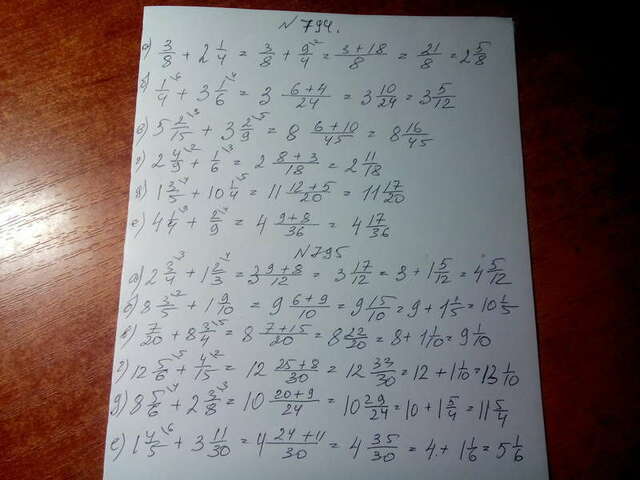 N 794.
а) 3/8 + 2 1/4 = 3/8 + 9/4 ² = (3+18)/8 = 21/8 = 2 5/8
б) 1/4 ⁶ + 3 1/6 ⁴ = 3 (6+4)/24 = 3 10/24 = 3 5/12
в) 5 2/15 ³ + 3 2/9 ⁵ = 8 (6+10)/45 = 8 16/45
г) 2 4/9 ² + 1/6 ³ = 2 (8+3)/18 = 2 11/18
д) 1 3/5 ⁴ + 10 1/4 ⁵ = 11 (12+5)/20 = 11 17/20
е) 4 1/4 ⁹ + 2/9 ⁴ = 4 (9+8)/36 = 4 17/36
N 795
а) 2 3/4 ³ + 1 2/3 ⁴ = 3 (9+8)/12 = 3 17/12 = 3 + 1 5/12 = 4 5/12
б) 8 3/5 ² + 1 9/10 = 9 (6+9)/10 = 9 15/10 = 9 + 1 1/5 = 10 1/5
в) 7/20 + 8 3/4 ⁵ = 8 (7+15)/20 = 8 22/20 = 8 + 1 1/10 = 9 1/10
г) 12 5/6 ⁵ + 4/15 ² = 12 (25+8)/30 = 12 33/30 = 12 + 1 1/10 = 13 1/10
д) 8 5/6 ⁴ + 2 3/8 ³ = 10 (20+9)/24 = 10 29/24 = 10 + 1 5/4 = 11 5/4
е) 1 4/5 ⁶ + 3 11/30 = 4 (24+11)/30 = 4 35/30 = 4 + 1 1/6 = 5 1/6